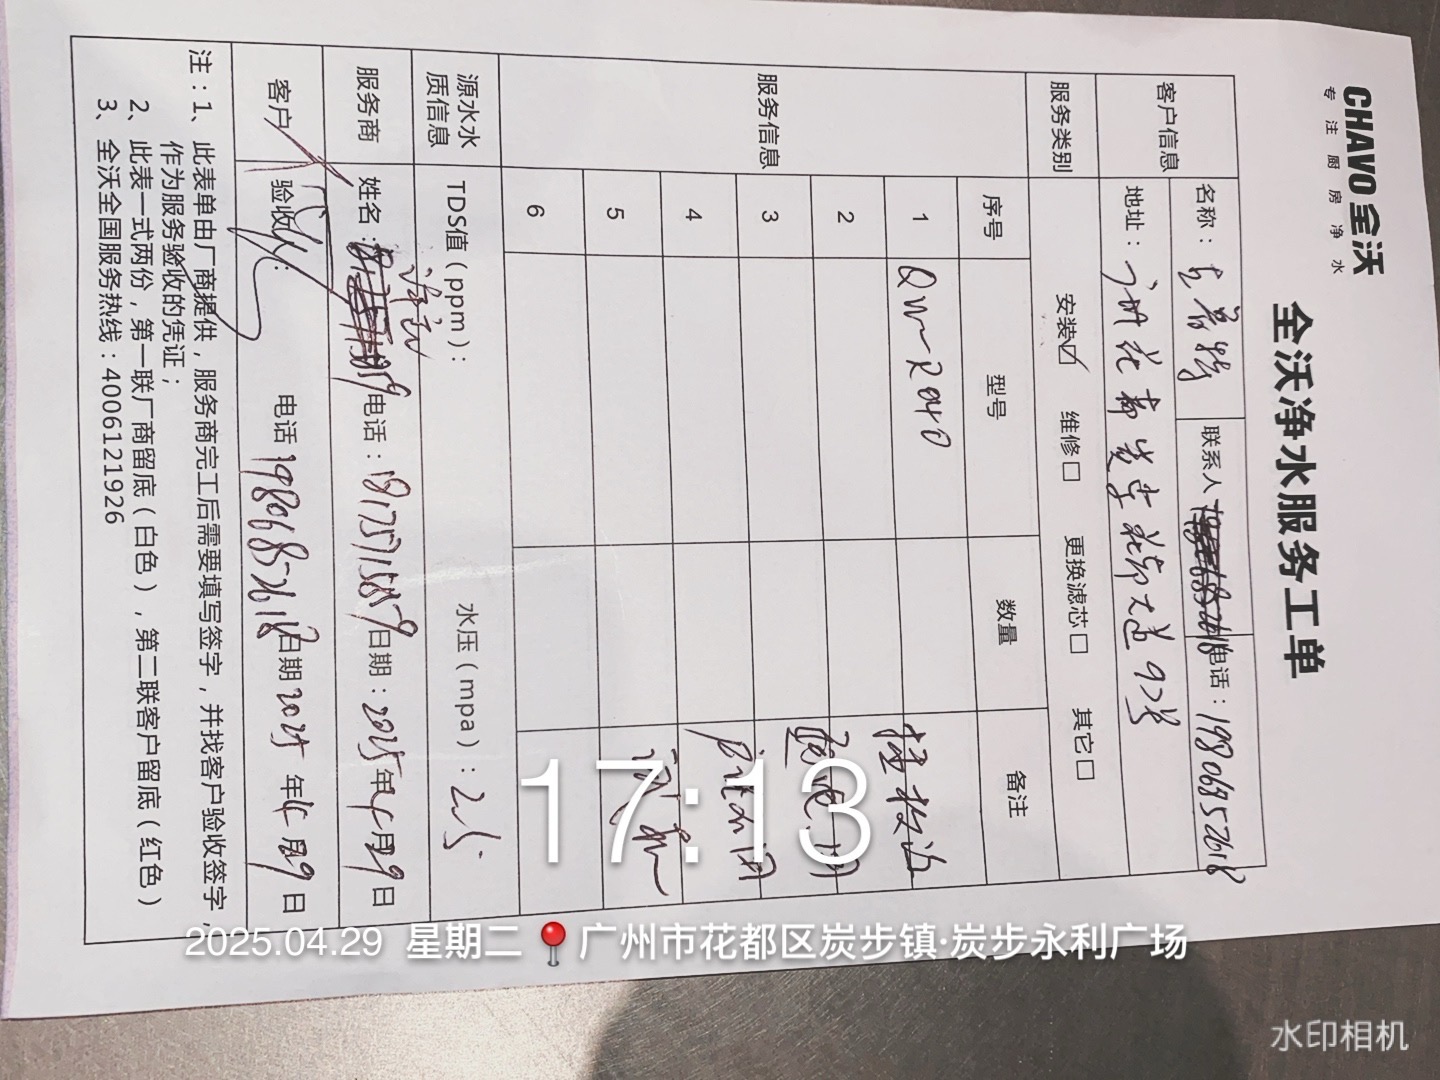 CHAVO 全沃
专注厨房净水
全沃净水服务工单
客户信息 名称： 联系人 电话：19806852618
地址：广州花都 大道97号
服务类别 安装☑ 维修□ 更换滤芯□ 其它□
服务信息 序号 型号 数量 备注
1 QW-R040
2
3
4
5
6
源水水质信息 TDS值（ppm）： 水压（mpa）：2.5
服务商 姓名： 电话：18175715859 日期：2025年4月29日
客户 验收 ： 电话 19806852618 日期 2025年4月29日
注：1、此表单由厂商提供，服务商完工后需要填写签字，并找客户验收签字，
作为服务验收的凭证；
2、此表一式两份，第一联厂商留底（白色），第二联客户留底（红色）
3、全沃全国服务热线：4006121926
17:13
2025.04.29 星期二 广州市花都区炭步镇·炭步永利广场
水印相机